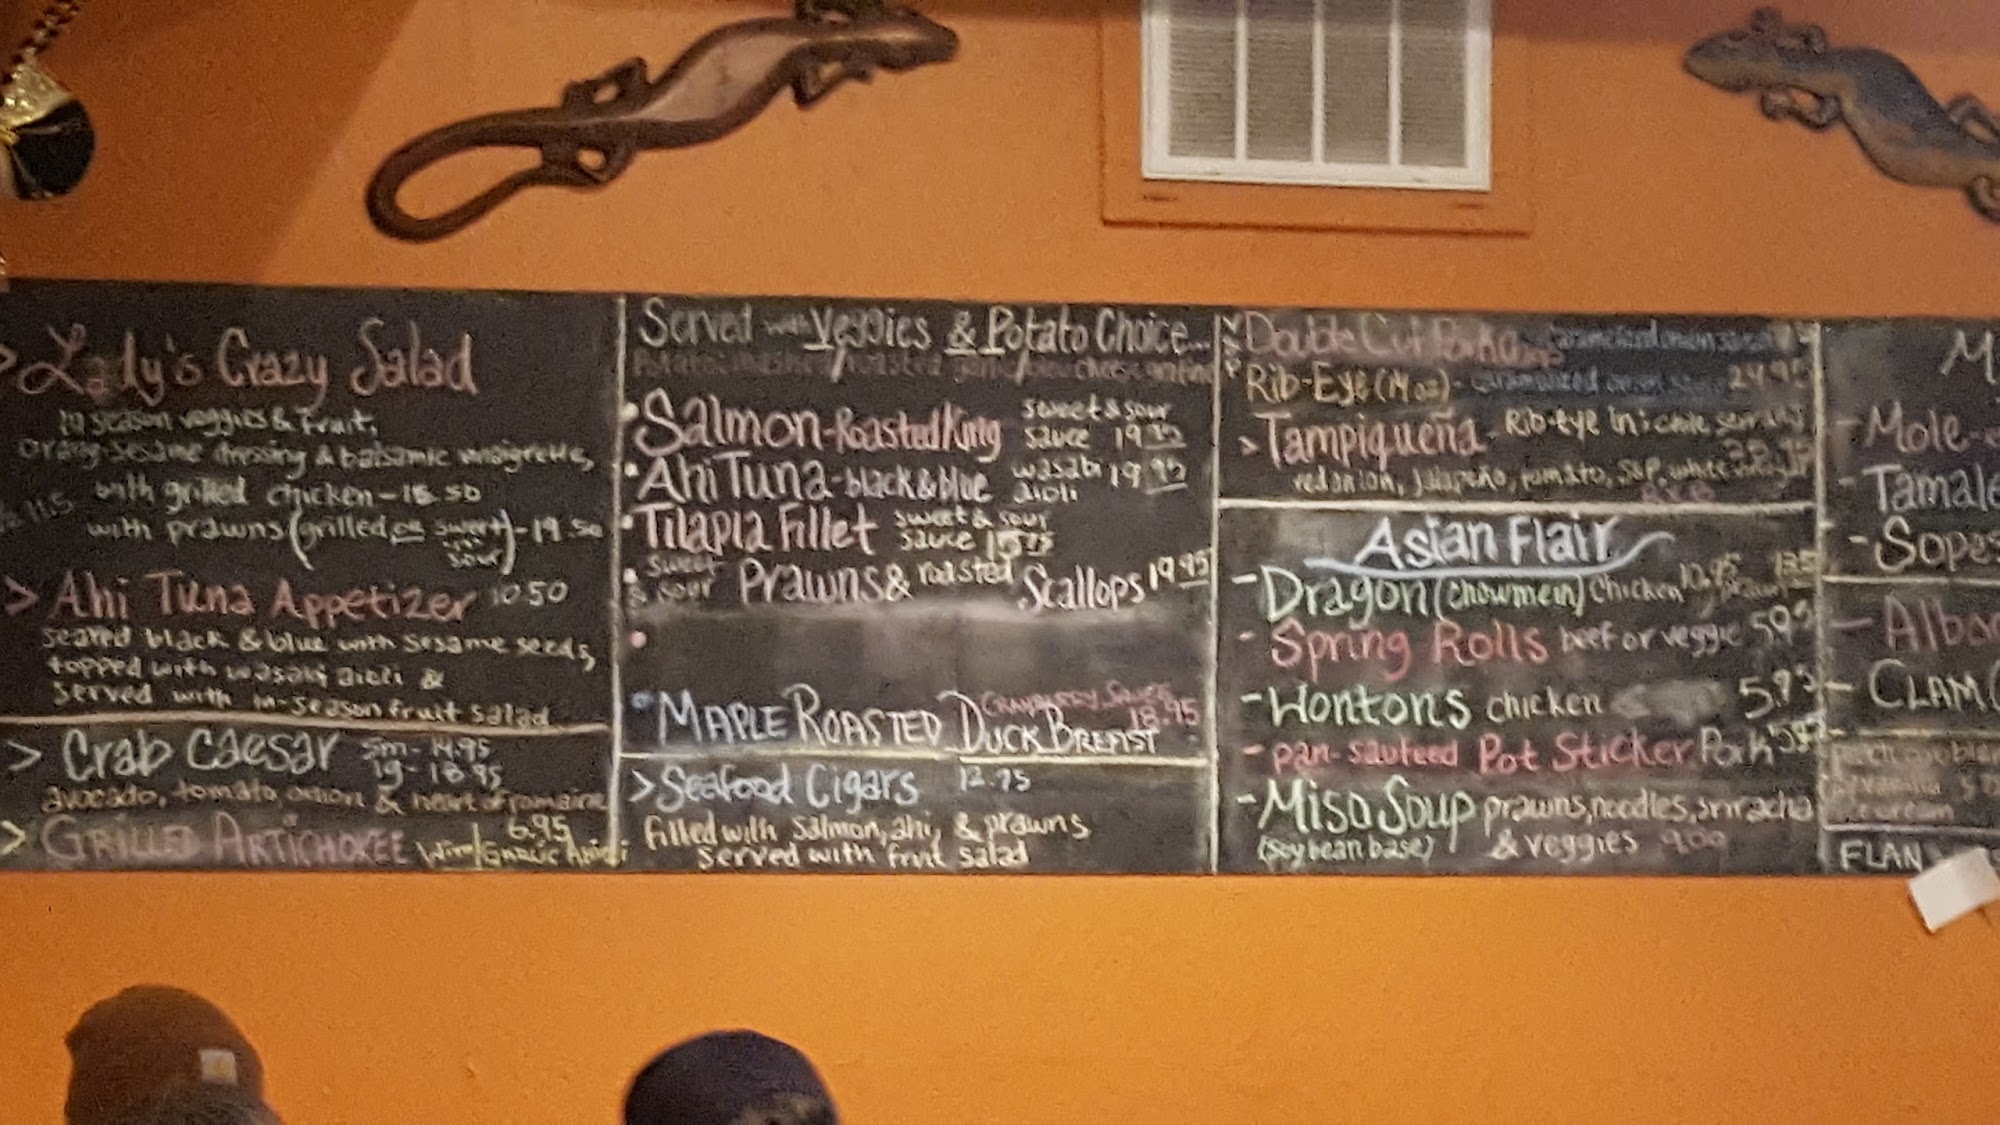 > Lady's Crazy Salad
in season veggies & fruit,
orange-sesame dressing & balsamic vinaigrette,
with grilled chicken - 16.50
with prawns (grilled or sweet and sour) - 19.50
> Ahi Tuna Appetizer 10.50
seared black & blue with sesame seeds,
topped with wasabi aioli &
served with in-season fruit salad
> Crab Caesar sm - 14.95
lg - 18.95
avocado, tomato, onion & heart of romaine
> Grilled Artichokee 6.95
w/ Garlic Aioli
Served with Veggies & Potato Choice...
• Salmon - Roasted King sweet & sour
sauce 19.95
• Ahi Tuna - black & blue wasabi
aioli 19.95
• Tilapia Fillet sweet & sour
sauce
• sweet & sour Prawns & roasted Scallops 19.95
• Maple Roasted Duck Breast Cranberry Sauce
18.95
> Seafood Cigars 12.75
filled with salmon, ahi, & prawns
served with fruit salad
Double Cut Pork
Rib-Eye (14oz) - caramelized onion 24.95
> Tampiqueña - Rib-eye in chile
red onion, jalapeño, tomato, S&P, white
Asian Flair
- Dragon (chowmein) chicken 10.95
- Spring Rolls beef or veggie 5.95
- Wontons chicken 5.95
- pan-sauteed Pot Sticker Pork 5.95
- Miso Soup prawns, noodles, sriracha
(soybean base) & veggies 9.00
- Mole -
- Tamale
- Sopes
- Albon
- Clam
FLAN